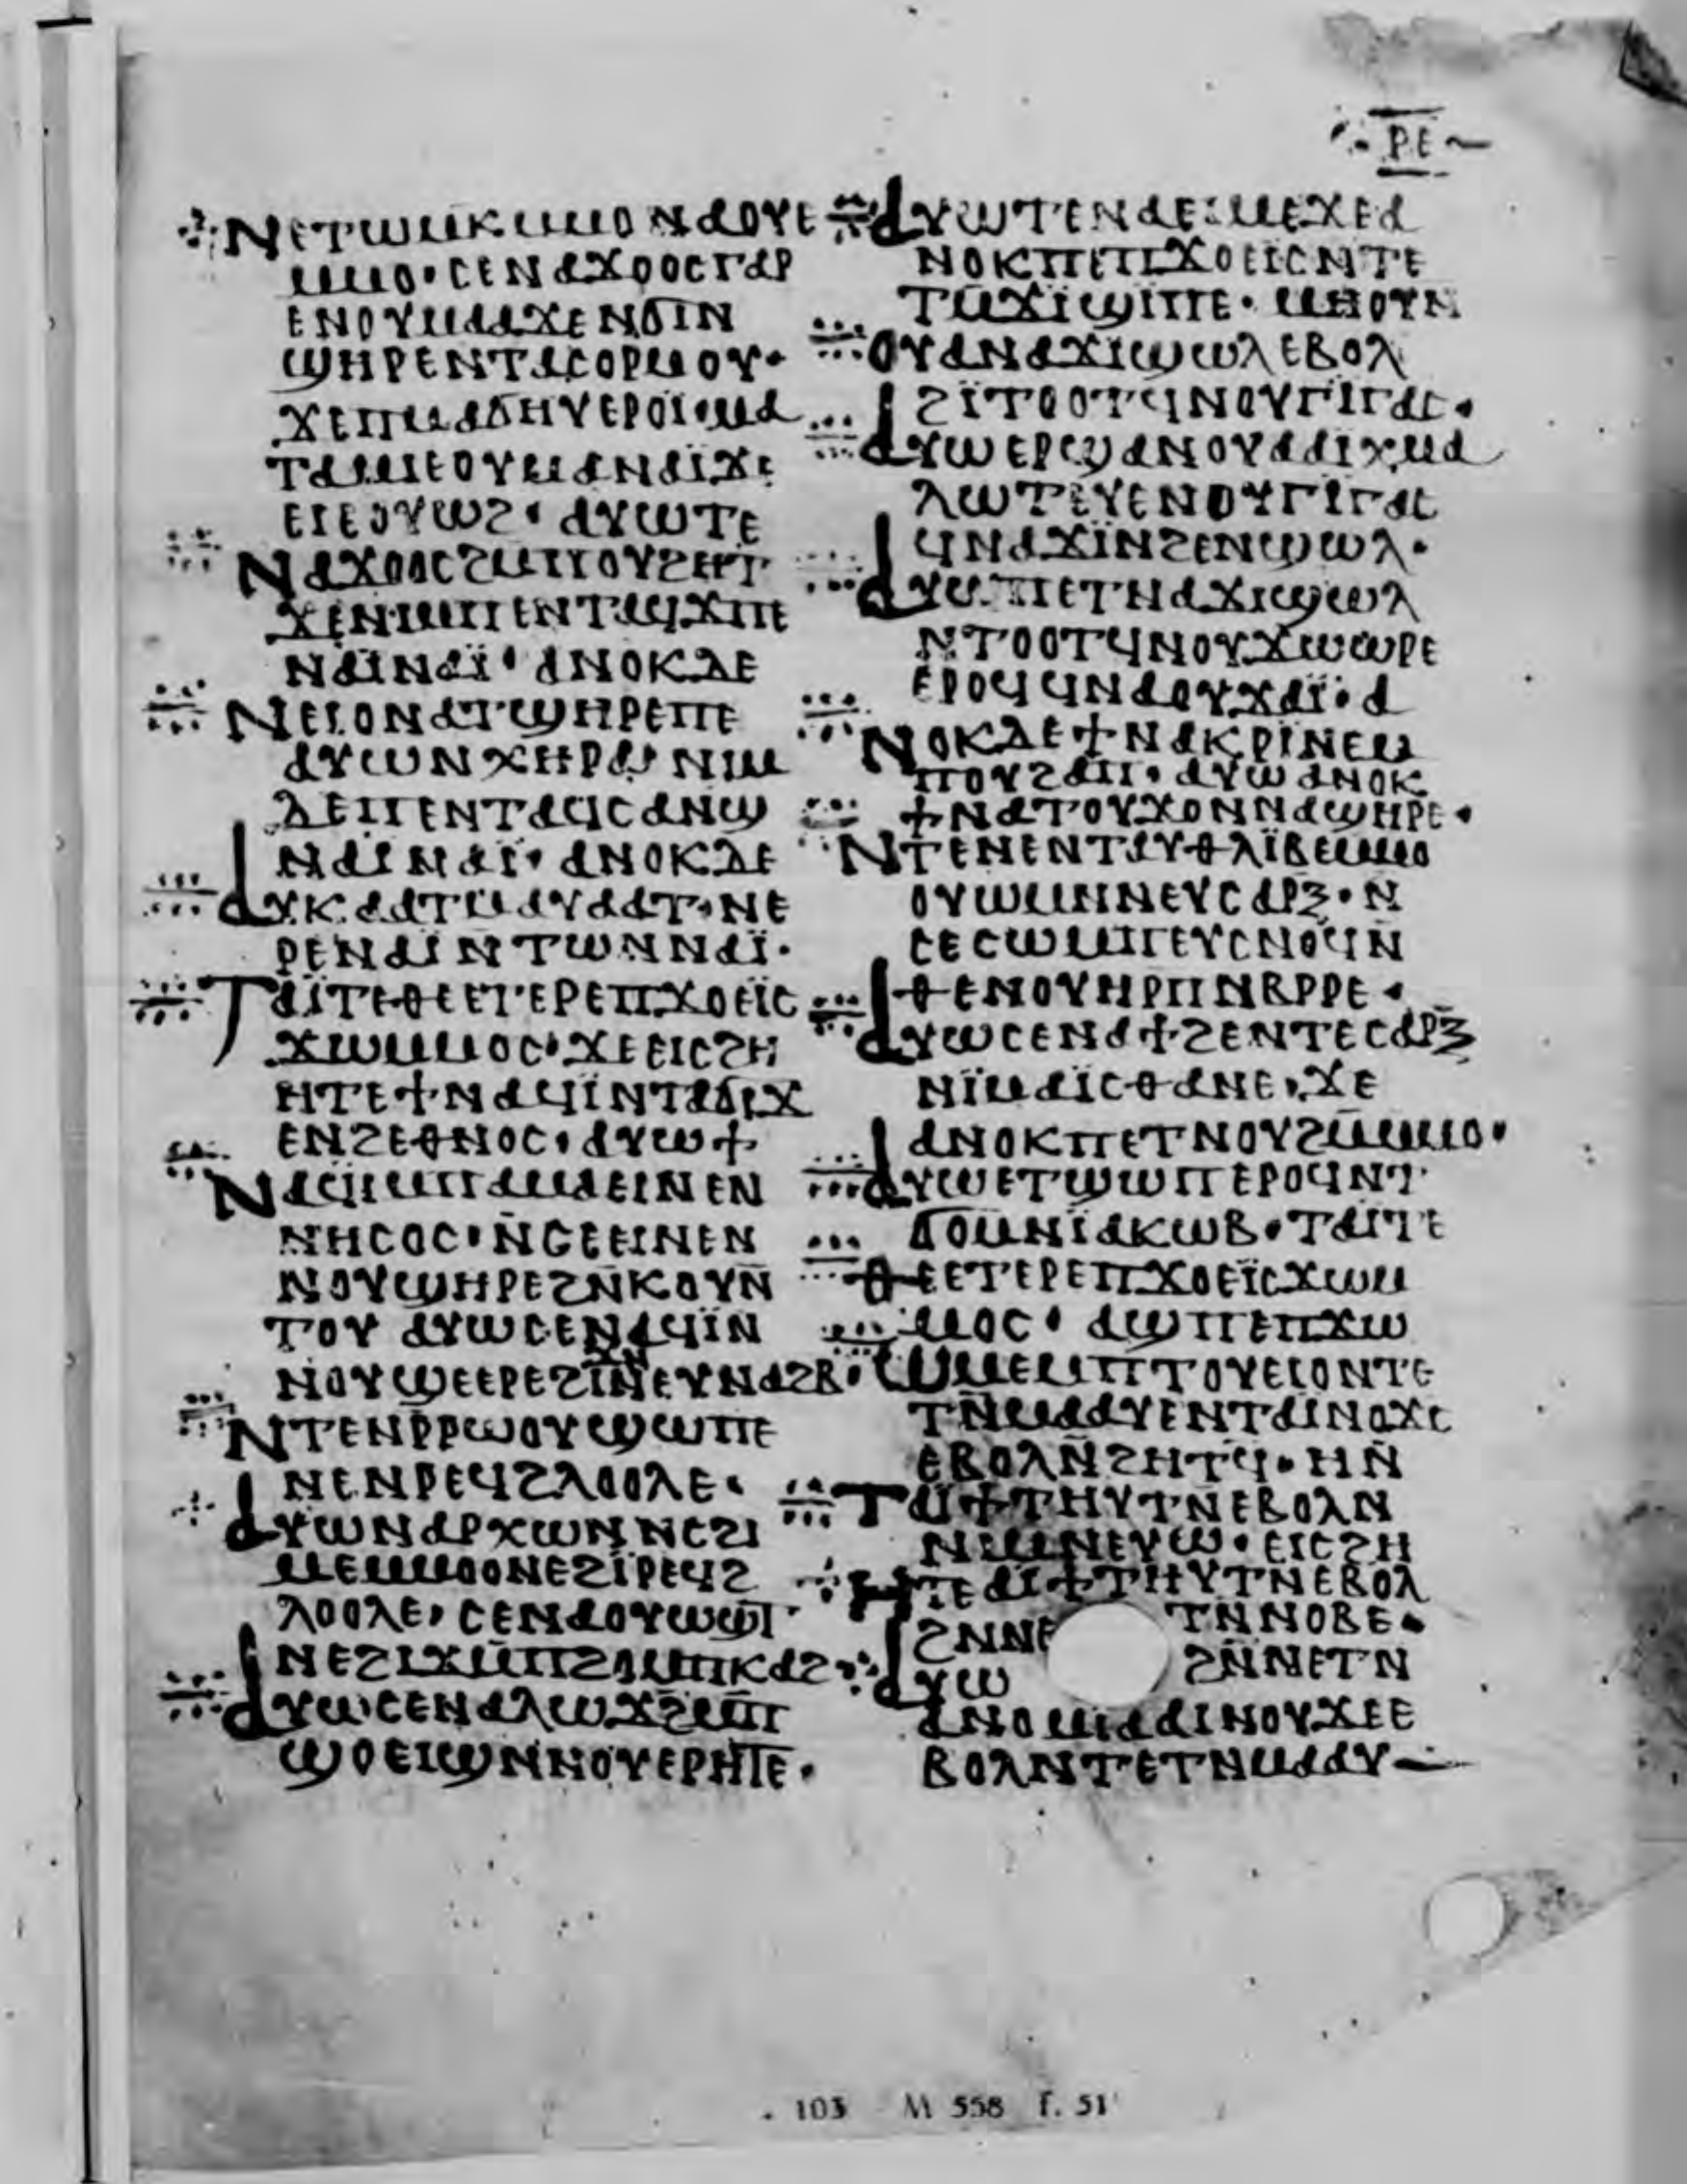 ⲣⲉ
ⲛⲉⲧⲱⲙⲕ ⲙⲙⲟ ⲛⲁⲟⲩⲉ
ⲙⲙⲟ· ⲥⲉⲛⲁϫⲟⲟⲥ ⲅⲁⲣ
ⲉⲛⲟⲩⲙⲁⲁϫⲉ ⲛϭⲓⲛ
ϣⲏⲣⲉ ⲛⲧⲁⲥⲟⲣⲙⲟⲩ·
ϫⲉ ⲡⲙⲁ ϭⲏⲩ ⲉⲣⲟⲓ· ⲙⲁ
ⲧⲁⲙⲓⲉ ⲟⲩⲙⲁ ⲛⲁⲓ̈ ϫⲉ
ⲉⲓⲉⲟⲩⲱϩ· ⲁⲩⲱ ⲧⲉ
ⲛⲁϫⲟⲟⲥ ϩⲙ ⲡⲟⲩϩⲏⲧ
ϫⲉ ⲛⲓⲙ ⲡⲉⲛⲧⲁϥϫⲡⲉ
ⲛⲁⲓ ⲛⲁⲓ̈· ⲁⲛⲟⲕ ⲇⲉ
ⲛⲉⲓⲟ ⲛⲁⲧϣⲏⲣⲉ ⲡⲉ
ⲁⲩⲱ ⲛⲭⲏⲣⲁ· ⲛⲓⲙ
ⲇⲉ ⲡⲉⲛⲧⲁϥⲥⲁⲛϣ
ⲛⲁⲓ ⲛⲁⲓ̈· ⲁⲛⲟⲕ ⲇⲉ
ⲁⲩⲕⲁⲁⲧ ⲙⲁⲩⲁⲁⲧ· ⲛⲉ
ⲣⲉ ⲛⲁⲓ̈ ⲛⲧⲱⲛ ⲛⲛⲁⲓ̈·
ⲧⲁⲓ̈ ⲧⲉ ⲑⲉ ⲉⲧⲉⲣⲉ ⲡϫⲟⲉⲓⲥ
ϫⲱ ⲙⲙⲟⲥ· ϫⲉ ⲉⲓⲥ ϩⲏ
ⲏⲧⲉ ϯⲛⲁϥⲓ ⲛⲧⲁϭⲓϫ
ⲉⲛϩⲉⲑⲛⲟⲥ· ⲁⲩⲱ ϯ
ⲛⲁϥⲓ ⲙⲡⲁⲙⲁⲉⲓⲛ ⲉⲛ
ⲛⲏⲥⲟⲥ· ⲛ̄ⲥⲉⲉⲓⲛⲉ ⲛ
ⲛⲟⲩϣⲏⲣⲉ ϩⲛ ⲕⲟⲩⲛ̄
ⲧⲟⲩ ⲁⲩⲱ ⲥⲉⲛⲁϥⲓ̈ ⲛ
ⲛⲟⲩϣⲉⲉⲣⲉ ϩⲓϫⲛ̄ ⲛⲉⲩⲛⲁϩⲃ·
ⲛⲧⲉ ⲛⲣⲣⲱⲟⲩ ϣⲱⲡⲉ
ⲛⲉ ⲛⲣⲉϥϩⲗⲟⲟⲗⲉ·
ⲁⲩⲱ ⲛⲁⲣⲭⲱⲛ ⲛⲉϩⲓ
ⲙⲉ ⲙⲙⲟⲟⲛⲉ ϩⲓ ⲣⲉϥϩ
ⲗⲟⲟⲗⲉ· ⲥⲉⲛⲁⲟⲩⲱϣⲧ
ⲛⲉ ϩⲓϫⲙ ⲡϩⲟ ⲙⲡⲕⲁϩ·
ⲁⲩⲱ ⲥⲉⲛⲁⲗⲱϫϩ ⲙⲡ
ϣⲟⲉⲓϣ ⲛⲛⲟⲩⲉⲣⲏⲧⲉ·
ⲁⲩⲱ ⲧⲉⲛⲁⲉⲓⲙⲉ ϫⲉ ⲁ
ⲛⲟⲕ ⲡⲉ ⲡϫⲟⲉⲓⲥ ⲛⲧⲉ
ⲧⲙ̄ϫⲓϣⲓⲡⲉ· ⲙⲏ ⲟⲩⲛ
ⲟⲩⲁ ⲛⲁϫⲓ ϣⲱⲗ ⲉⲃⲟⲗ
ϩⲓ̈ⲧⲟⲟⲧϥ ⲛⲟⲩⲅⲓⲅⲁⲥ·
ⲁⲩⲱ ⲉⲣϣⲁⲛ ⲟⲩⲁ ⲁⲓⲭⲙⲁ
ⲗⲱⲧⲉⲩⲉ ⲛⲟⲩⲅⲓⲅⲁⲥ
ϥⲛⲁϫⲓ ⲛϩⲉⲛϣⲱⲗ·
ⲁⲩⲱ ⲡⲉⲧⲛⲁϫⲓ ϣⲱⲗ
ⲛⲧⲟⲟⲧϥ ⲛⲟⲩϫⲱⲱⲣⲉ
ⲉⲣⲟϥ ϥⲛⲁⲟⲩϫⲁⲓ̈· ⲁ
ⲛⲟⲕ ⲇⲉ ϯⲛⲁⲕⲣⲓⲛⲉ ⲙ
ⲡⲟⲩϩⲁⲡ· ⲁⲩⲱ ⲁⲛⲟⲕ
ϯⲛⲁⲧⲟⲩϫⲟ ⲛⲛⲁϣⲏⲣⲉ·
ⲛⲧⲉ ⲛⲉⲛⲧⲁⲩⲑⲗⲓ̈ⲃⲉ ⲙⲙⲟ
ⲟⲩⲱⲙ ⲛⲛⲉⲩⲥⲁⲣⲝ· ⲛ
ⲥⲉⲥⲱ ⲙⲡⲉⲩⲥⲛⲟϥ ⲛ̄
ⲑⲉ ⲛⲟⲩⲏⲣⲡ ⲛⲃⲣⲣⲉ·
ⲁⲩⲱ ⲥⲉⲛⲁϯϩⲉ ⲛⲧⲉ ⲥⲁⲣⲝ
ⲛⲓ̈ⲙ ⲁⲓⲥⲑⲁⲛⲉ· ϫⲉ
ⲁⲛⲟⲕ ⲡⲉⲧⲛⲟⲩϩⲙ̄ ⲙⲙⲟ·
ⲁⲩⲱ ⲉⲧϣⲱⲡ ⲉⲣⲟϥ ⲛⲧ
ϭⲟⲙ ⲛⲓ̈ⲁⲕⲱⲃ· ⲧⲁⲓ ⲧⲉ
ⲑⲉ ⲉⲧⲉⲣⲉ ⲡϫⲟⲉⲓ̈ⲥ ϫⲱ ⲙ
ⲙⲟⲥ· ⲁϣ ⲡⲉ ⲡϫⲱ
ⲱⲙⲉ ⲙⲡⲧⲟⲩⲉⲓⲟ ⲛⲧⲉ
ⲧⲛ̄ⲙⲁⲁⲩ ⲉⲛⲧⲁⲓⲛⲟϫⲥ
ⲉⲃⲟⲗ ⲛ̄ϩⲏⲧϥ· ⲏ ⲛ̄
ⲧⲁⲓϯ ⲧⲏⲩⲧⲛ ⲉⲃⲟⲗ ⲛ
ⲛⲓⲙ ⲛⲉⲩⲱ· ⲉⲓⲥ ϩⲏ
ⲏⲧⲉ ⲁⲓϯ ⲧⲏⲩⲧⲛ ⲉⲃⲟⲗ
ϩⲛ ⲛⲉⲧⲛⲛⲟⲃⲉ·
ⲁⲩⲱ ϩⲛ ⲛⲉⲧⲛ
ⲁⲛⲟⲙⲓⲁ ⲁⲓⲛⲟⲩϫⲉ ⲉ
ⲃⲟⲗ ⲛⲧⲉⲧⲛⲙⲁⲁⲩ
103 M 558 f. 51